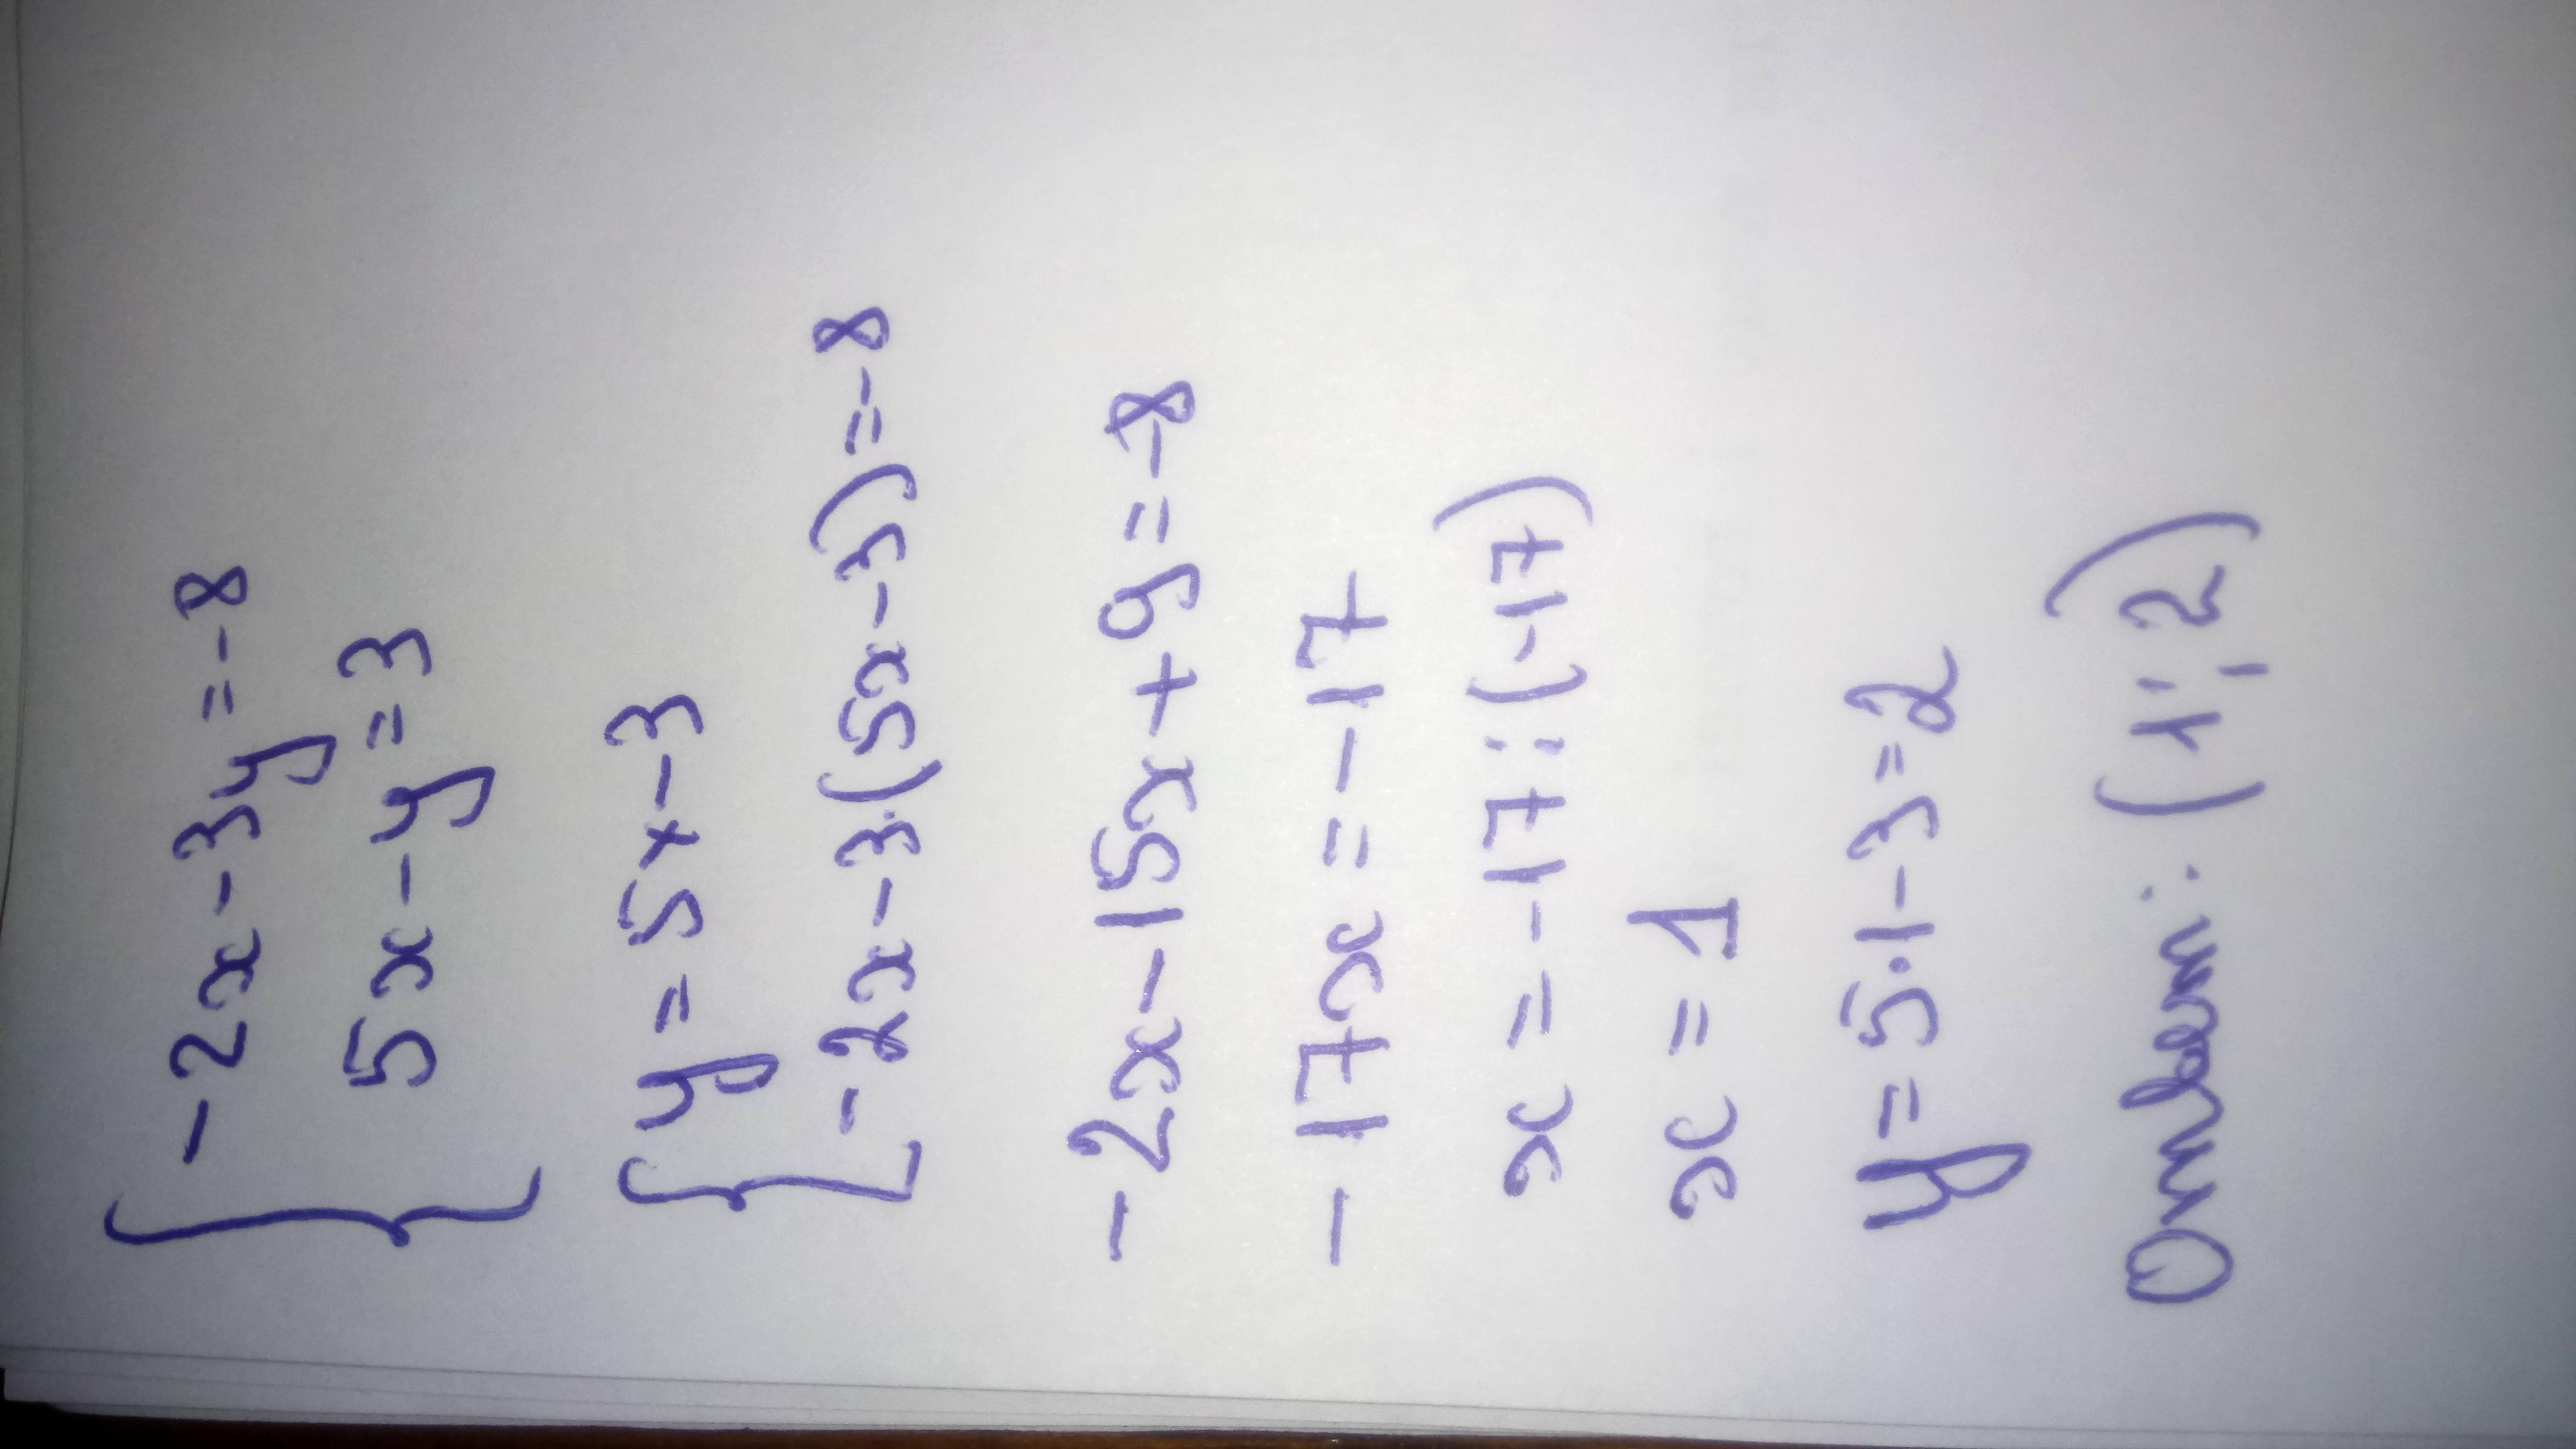 { -2x-3y=-8
5x-y=3
{ y=5x-3
-2x-3·(5x-3)=-8
-2x-15x+9=-8
-17x=-17
x=-17:(-17)
x=1
y=5·1-3=2
Ответ: (1;2)